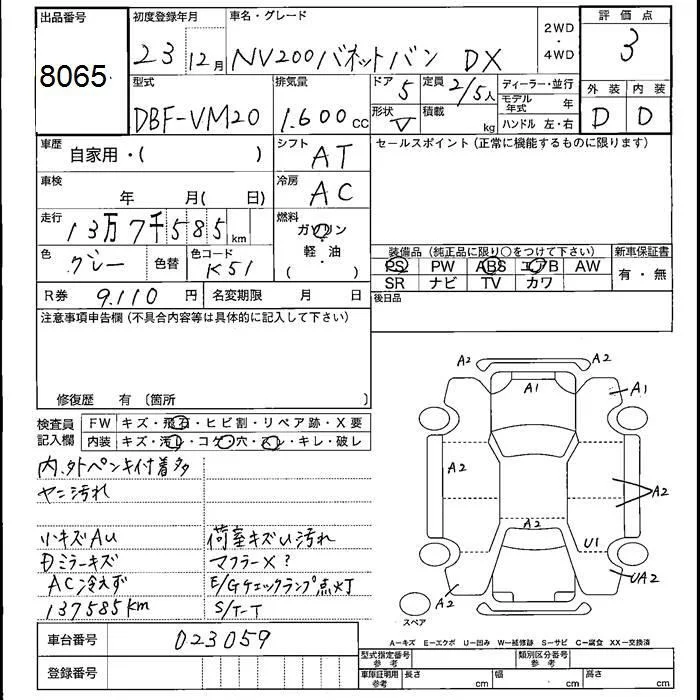 出品番号
8065
初度登録年月
23 12月
車名・グレード
NV200バネットバン DX
2WD
・
4WD
評価点
3
型式
DBF-VM20
排気量
1.600 cc
ドア 5
形状 V
定員 2/5人
積載 kg
ディーラー・並行
モデル年式 年
ハンドル 左・右
外装 内装
D D
車歴 自家用・( )
シフト
AT
セールスポイント(正常に機能するものに限ります)
車検
年 月( 日)
冷房
AC
走行
13万7千585km
燃料
ガソリン
軽・油
( )
色
グレー
色替
色コード
K51
装備品(純正品に限り○をつけて下さい)
新車保証書
PS PW ABS エアB AW
SR ナビ TV カワ
有・無
R券 9.110 円
名変期限 月 日
後日品
注意事項申告欄(不具合内容等は具体的に記入して下さい)
修復歴 有 〔箇所 〕
検査員
記入欄
FW キズ・飛石・ヒビ割・リペア跡・X要
内装 キズ・汚レ・コゲ・穴・スレ・キレ・破レ
内、外ペンキ付着多
ヤニ汚れ
小キズAU
Dミラーキズ
AC冷えず
137585km
荷室キズU汚れ
マフラーX?
E/Gチェックランプ点灯
S/T-T
A2 A2
A1 A1
A2 A2
A2
U1
A2 UA2
スペア
A-キズ E-エクボ U-凹み W-補修跡 S-サビ C-腐食 XX-交換済
車台番号 023059
登録番号
型式指定番号
参考
類別区分番号
参考
車庫証明用
参考
長さ cm 幅 cm 高さ cm